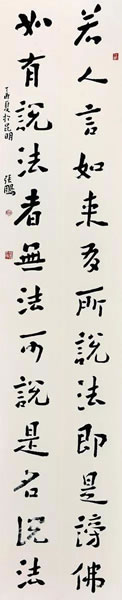 若人言如来有所說法即是謗佛
如有說法者無法可說是名説法
丁酉夏於昆明 張鵬